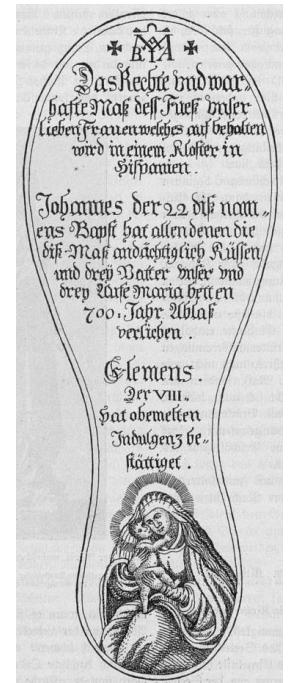 ✠ MARIA ✠
Das Rechte vnd war-
hafte Maß dess Fueß vnser
lieben Frauen welches auf behalten
wird in einem Kloster in
Hispanien.
Johannes der 22 diß nam-
ens Bapst hat allen denen die
diß Maß andächtiglich Küssen
und dreÿ Vatter vnser vnd
dreÿ Aufe Maria betten
700. Jahr Ablaß
verlichen.
Clemens.
Der VIII.
Hat obemelten
Indulgenz be-
stättiget.